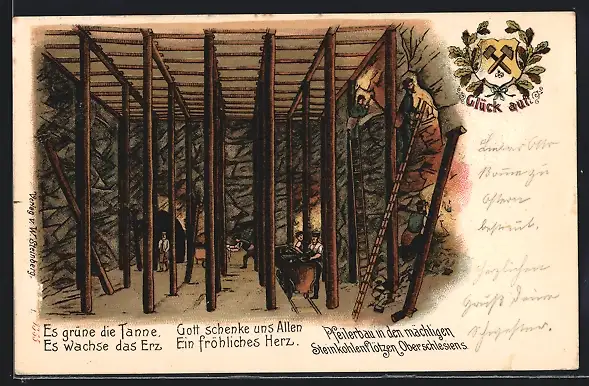 Glück auf!
Verlag v. W. Steinberg.
Es grüne die Tanne,
Es wachse das Erz
Gott schenke uns Allen
Ein fröhliches Herz.
Pfeilerbau in den mächtigen
Steinkohlenflötzen Oberschlesiens.
zu
Ostern
herzlichen
Gruß Deine